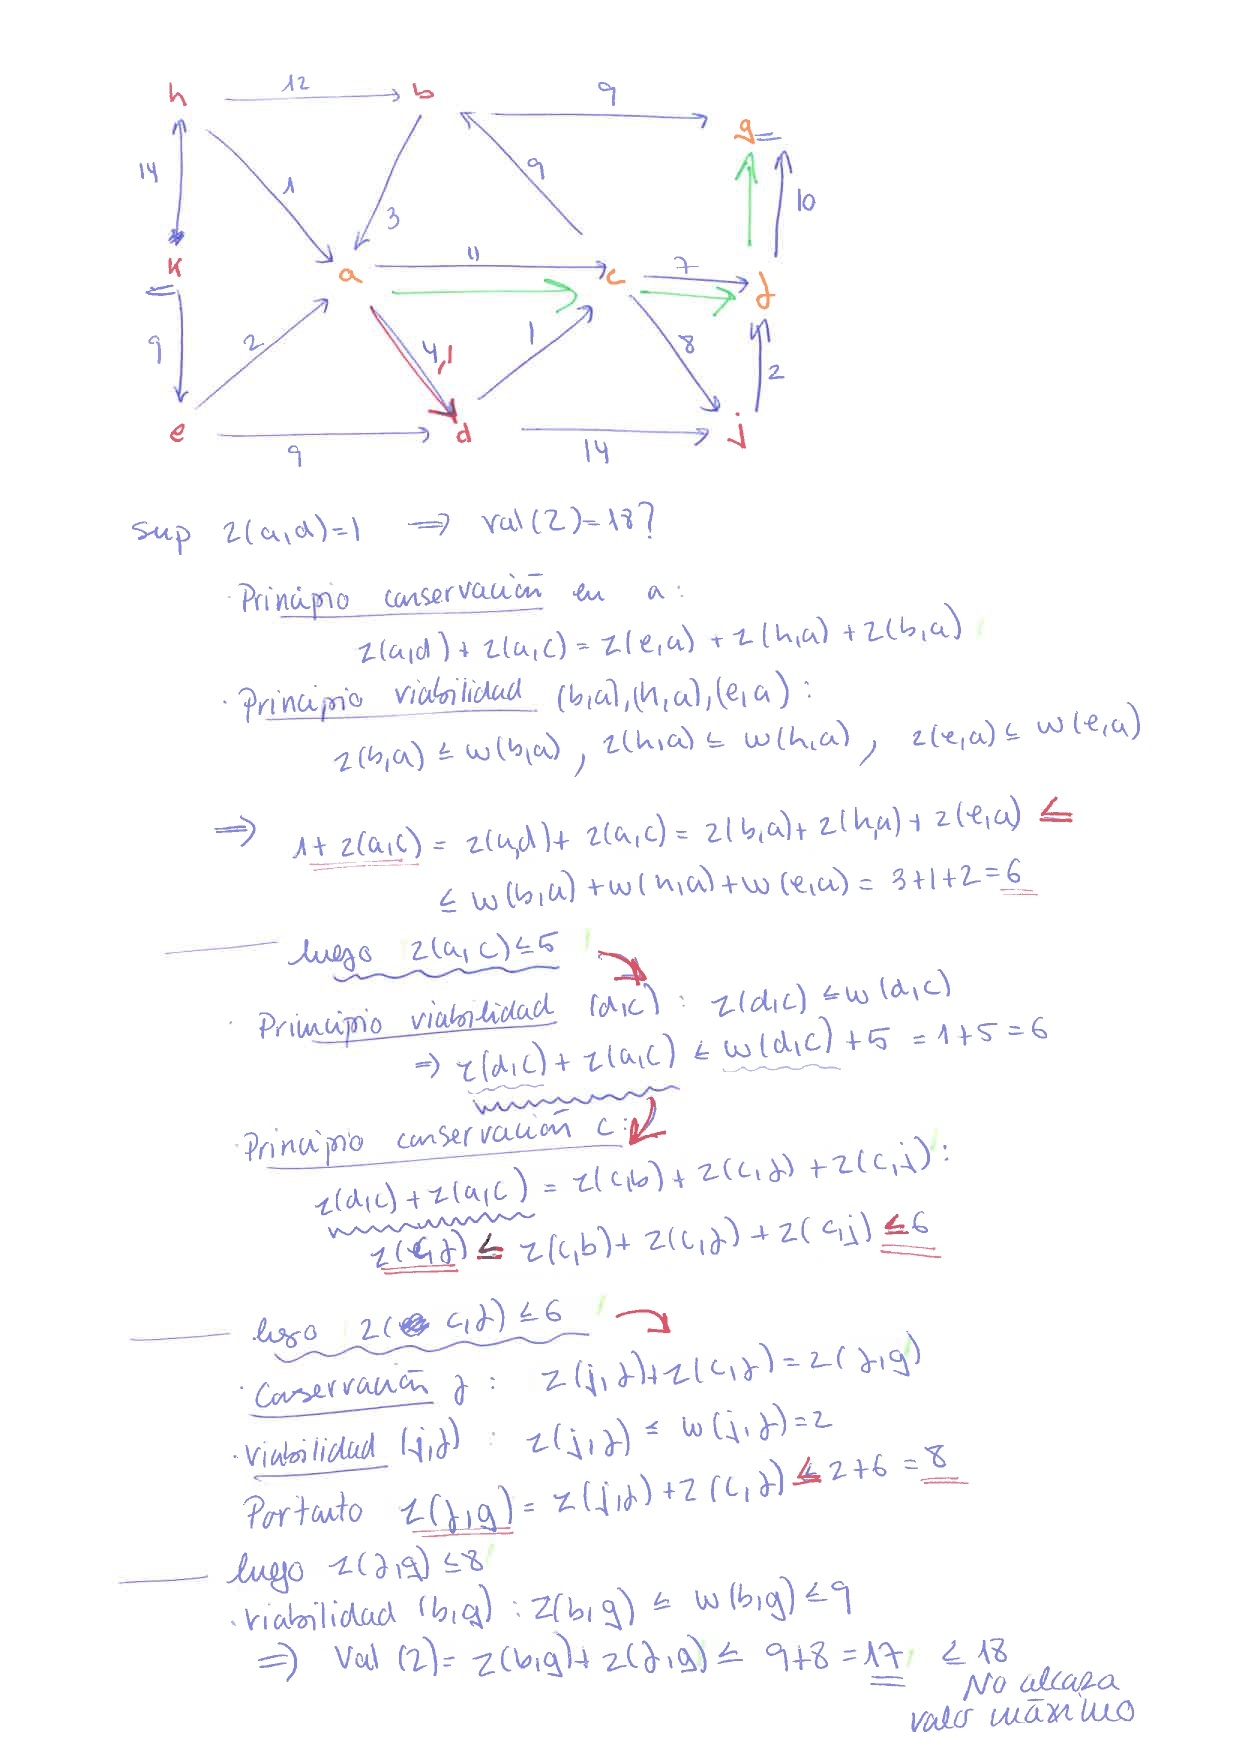 h 12 b 9 g
14 1 3 9 10
k a 11 c 7 f
9 2 4,1 1 8 2
e 9 d 14 j
sup z(a,d)=1 ⇒ val(z)=18?
· Principio conservación en a:
z(a,d) + z(a,c) = z(e,a) + z(h,a) + z(b,a)
· Principio viabilidad (b,a),(h,a),(e,a):
z(b,a) ≤ w(b,a), z(h,a) ≤ w(h,a), z(e,a) ≤ w(e,a)
⇒ 1 + z(a,c) = z(a,d) + z(a,c) = z(b,a) + z(h,a) + z(e,a) ≤
≤ w(b,a) + w(h,a) + w(e,a) = 3+1+2 = 6
luego z(a,c) ≤ 5
· Principio viabilidad (d,c) : z(d,c) ≤ w(d,c)
⇒ z(d,c) + z(a,c) ≤ w(d,c) + 5 = 1+5 = 6
· Principio conservación c:
z(d,c) + z(a,c) = z(c,b) + z(c,f) + z(c,j):
z(c,f) ≤ z(c,b) + z(c,f) + z(c,j) ≤ 6
luego z(c,f) ≤ 6
· Conservación f : z(j,f) + z(c,f) = z(f,g)
· Viabilidad (j,f) : z(j,f) ≤ w(j,f) = 2
Portanto z(f,g) = z(j,f) + z(c,f) ≤ 2+6 = 8
luego z(f,g) ≤ 8
· viabilidad (b,g) : z(b,g) ≤ w(b,g) ≤ 9
⇒ Val(z) = z(b,g) + z(f,g) ≤ 9+8 = 17 ≤ 18
No alcaza
valor máximo